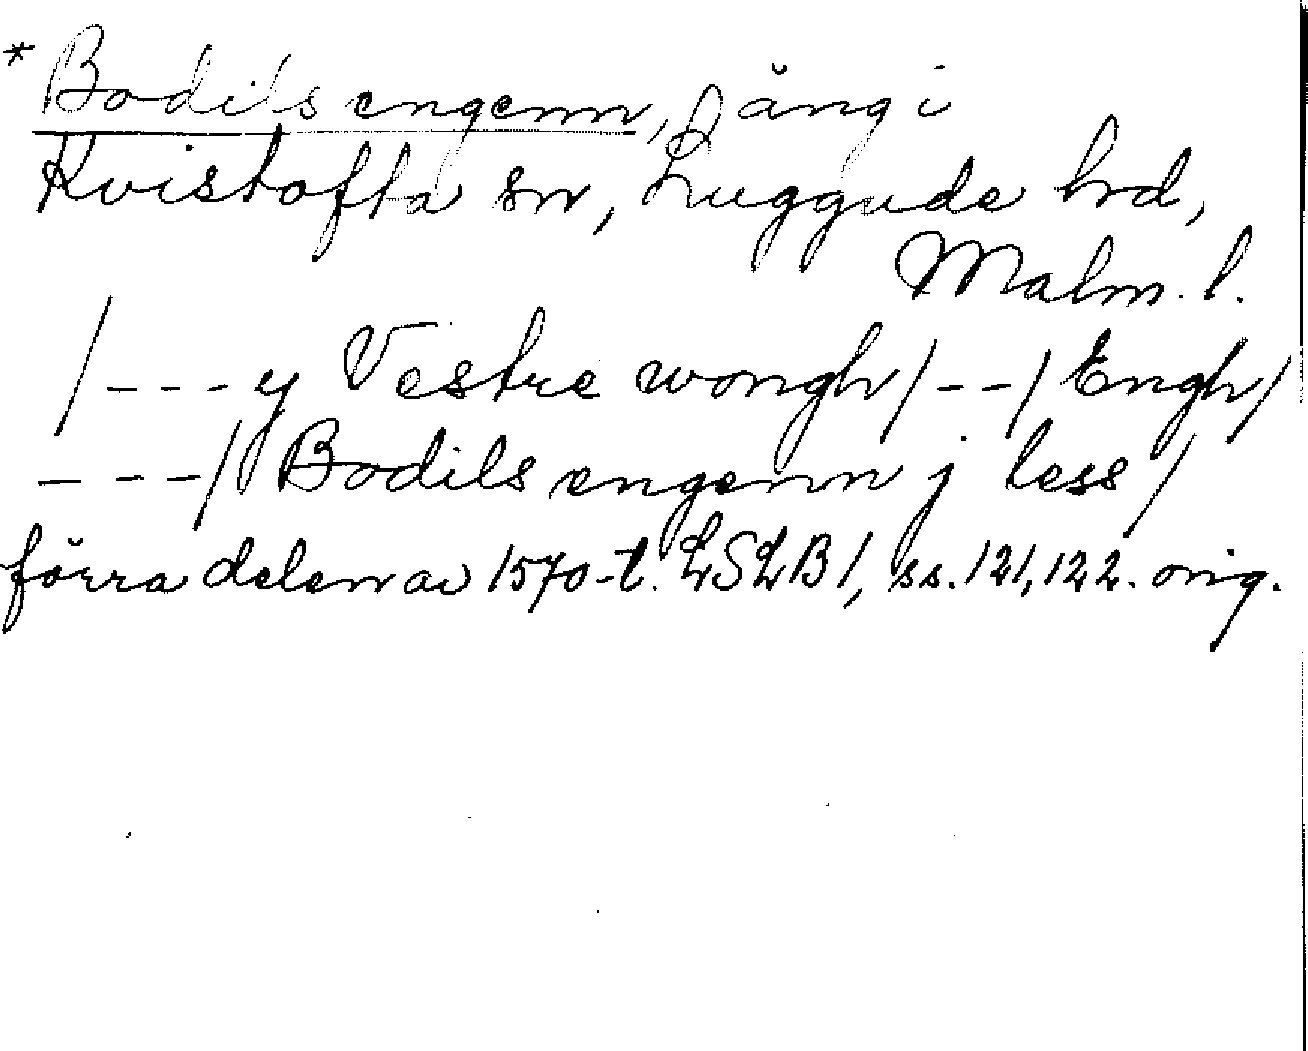 * Bodils engenn, äng i
Kvistofta sn, Luggude hd,
Malm. l.
/ - - - y Vestre wongh / - - / Engh /
- - - / Bodils engenn j less /
förra delen av 1570-t. LSLB 1, ss. 121, 122. orig.